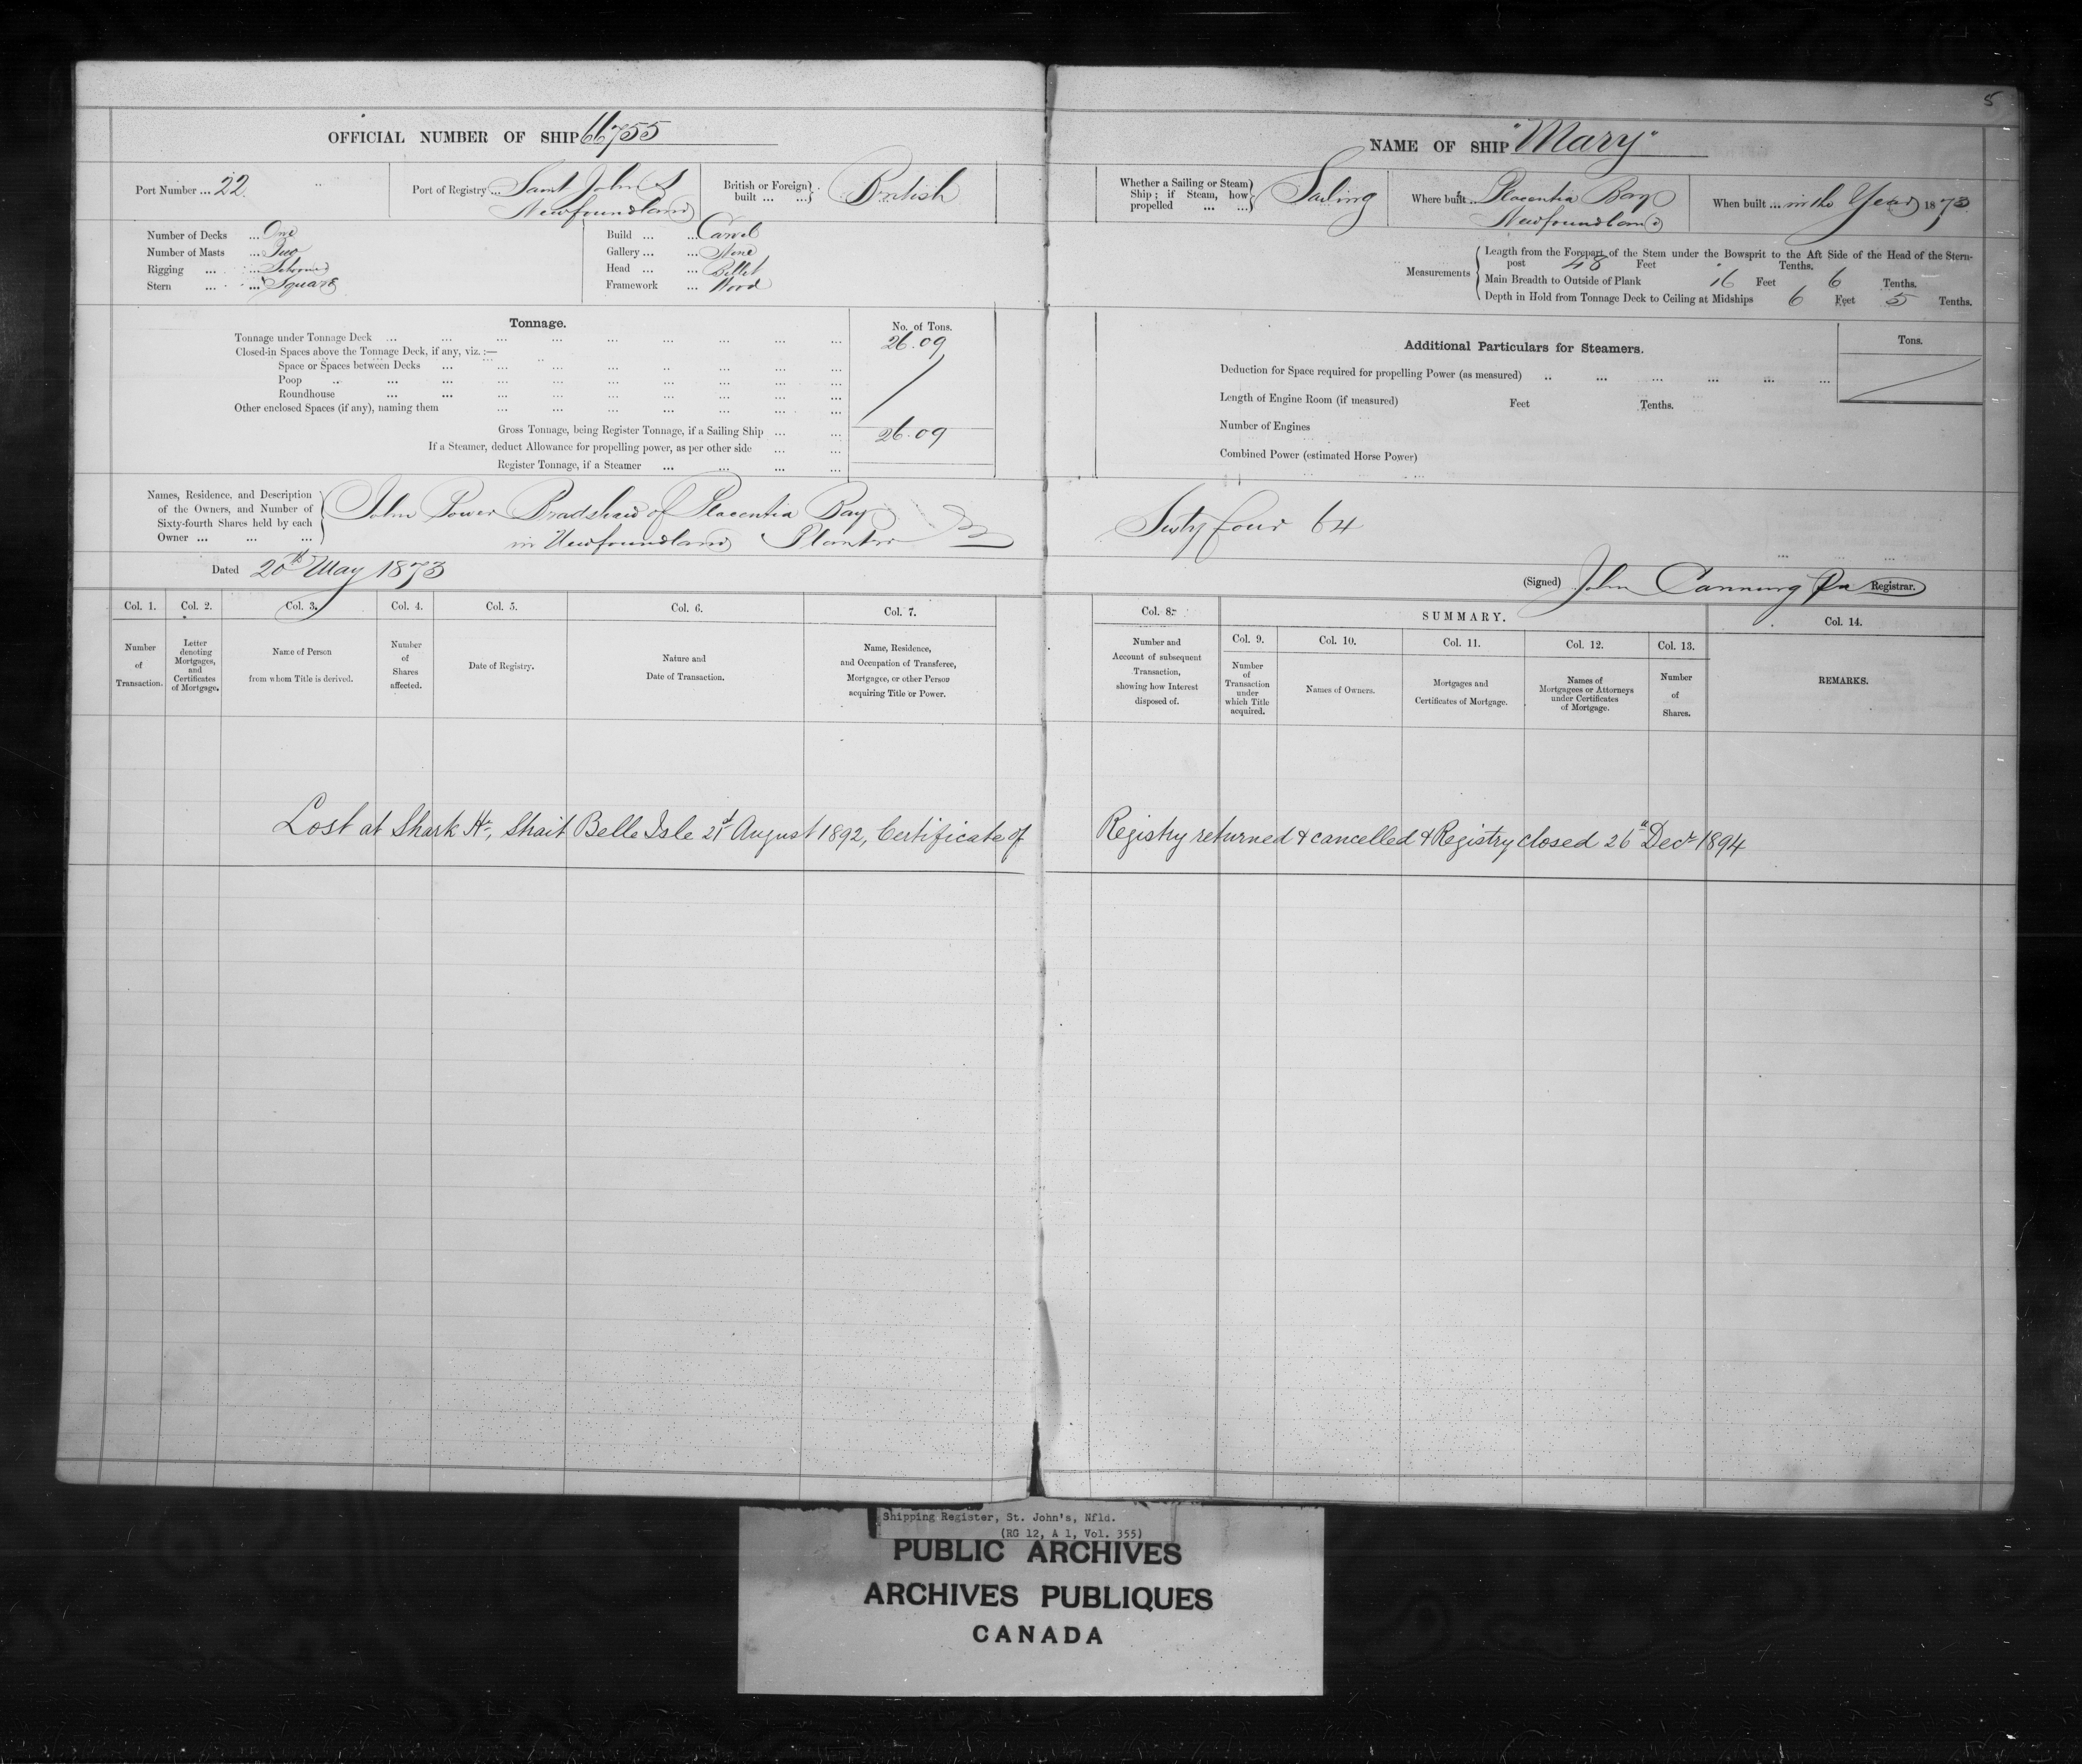 5
OFFICIAL NUMBER OF SHIP 66755
Port Number ... 22
Port of Registry ... Saint John's
Newfoundland
British or Foreign built ... ... British
Number of Decks ... One
Number of Masts ... Two
Rigging ... ... Schooner
Stern ... ... Square
Build ... ... Carvel
Gallery ... ... None
Head ... ... Billet
Framework ... Wood
Tonnage.
No. of Tons.
Tonnage under Tonnage Deck ... 26.09
Closed-in Spaces above the Tonnage Deck, if any, viz. :—
Space or Spaces between Decks ...
Poop ...
Roundhouse ...
Other enclosed Spaces (if any), naming them ...
Gross Tonnage, being Register Tonnage, if a Sailing Ship ... 26.09
If a Steamer, deduct Allowance for propelling power, as per other side ...
Register Tonnage, if a Steamer ...
Names, Residence, and Description
of the Owners, and Number of
Sixty-fourth Shares held by each
Owner ... ... ...
John Power Bradshaw of Placentia Bay
in Newfoundland Planter
Dated 20th May 1873
Col. 1. Number of Transaction.
Col. 2. Letter denoting Mortgages, and Certificates of Mortgage.
Col. 3. Name of Person from whom Title is derived.
Col. 4. Number of Shares affected.
Col. 5. Date of Registry.
Col. 6. Nature and Date of Transaction.
Col. 7. Name, Residence, and Occupation of Transferee, Mortgagee, or other Person acquiring Title or Power.
NAME OF SHIP "Mary"
Whether a Sailing or Steam Ship; if Steam, how propelled ... ... Sailing
Where built ... Placentia Bay
Newfoundland
When built ... in the Year 1873
Measurements
Length from the Forepart of the Stem under the Bowsprit to the Aft Side of the Head of the Stern-
post 48 Feet Tenths.
Main Breadth to Outside of Plank 16 Feet 6 Tenths.
Depth in Hold from Tonnage Deck to Ceiling at Midships 6 Feet 5 Tenths.
Additional Particulars for Steamers.
Tons.
Deduction for Space required for propelling Power (as measured) ...
Length of Engine Room (if measured) Feet Tenths.
Number of Engines
Combined Power (estimated Horse Power)
Sixty four 64
(Signed) John Canning Registrar.
Col. 8. Number and Account of subsequent Transaction, showing how Interest disposed of.
SUMMARY.
Col. 9. Number of Transaction under which Title acquired.
Col. 10. Names of Owners.
Col. 11. Mortgages and Certificates of Mortgage.
Col. 12. Names of Mortgagees or Attorneys under Certificates of Mortgage.
Col. 13. Number of Shares.
Col. 14. REMARKS.
Lost at Shark Hr, Strait Belle Isle 21st August 1892, Certificate of Registry returned & cancelled & Registry closed 26th Decr 1894
Shipping Register, St. John's, Nfld.
(RG 12, A 1, Vol. 355)
PUBLIC ARCHIVES
ARCHIVES PUBLIQUES
CANADA